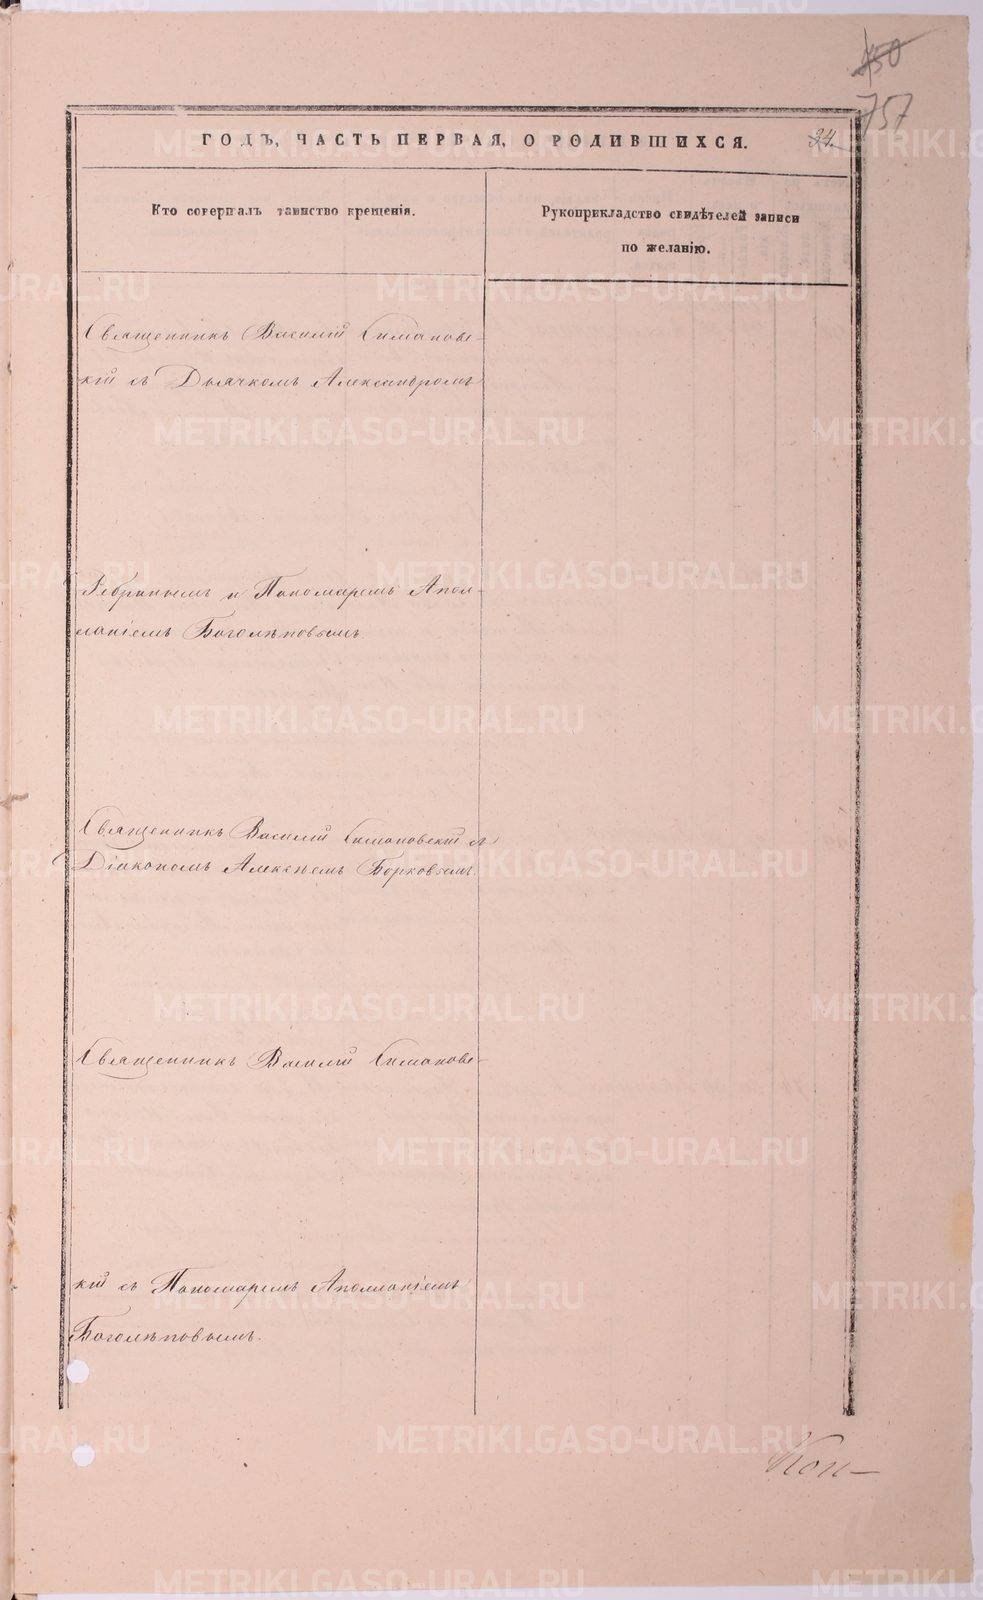 750
757
ГОДЪ, ЧАСТЬ ПЕРВАЯ, О РОДИВШИХСЯ. 34.
Кто совершалъ таинство крещенія.
Рукоприкладство свидѣтелей записи
по желанію.
Священникъ Василій Симановс-
кій съ Дьячкомъ Александромъ
и Пономаремъ Апол-
лоніемъ Боголѣповымъ.
Священникъ Василій Симановскій съ
Діакономъ Алексѣемъ Борковымъ.
Священникъ Василій Симановс-
кій съ Пономаремъ Аполлоніемъ
Боголѣповымъ.
METRIKI.GASO-URAL.RU